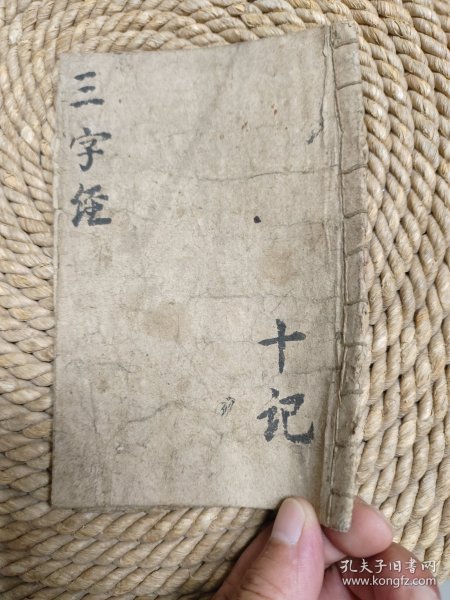 三字经
十记
孔夫子旧书网
www.kongfz.com